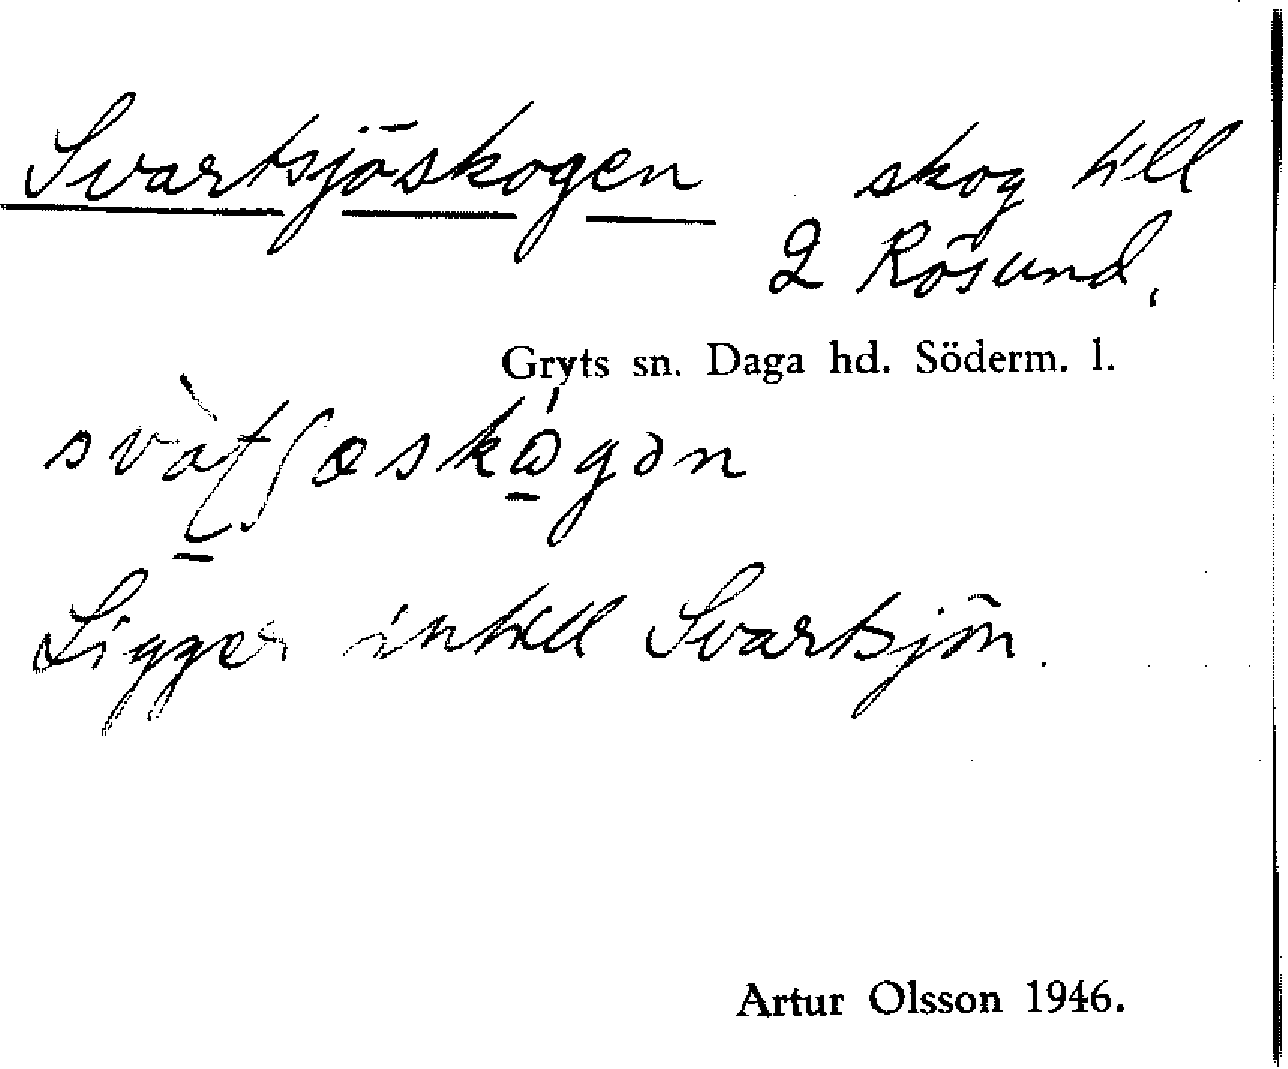 Svartsjöskogen skog till
2 Rösund.
Gryts sn. Daga hd. Söderm. l.
Ligger intill Svartsjön.
Artur Olsson 1946.